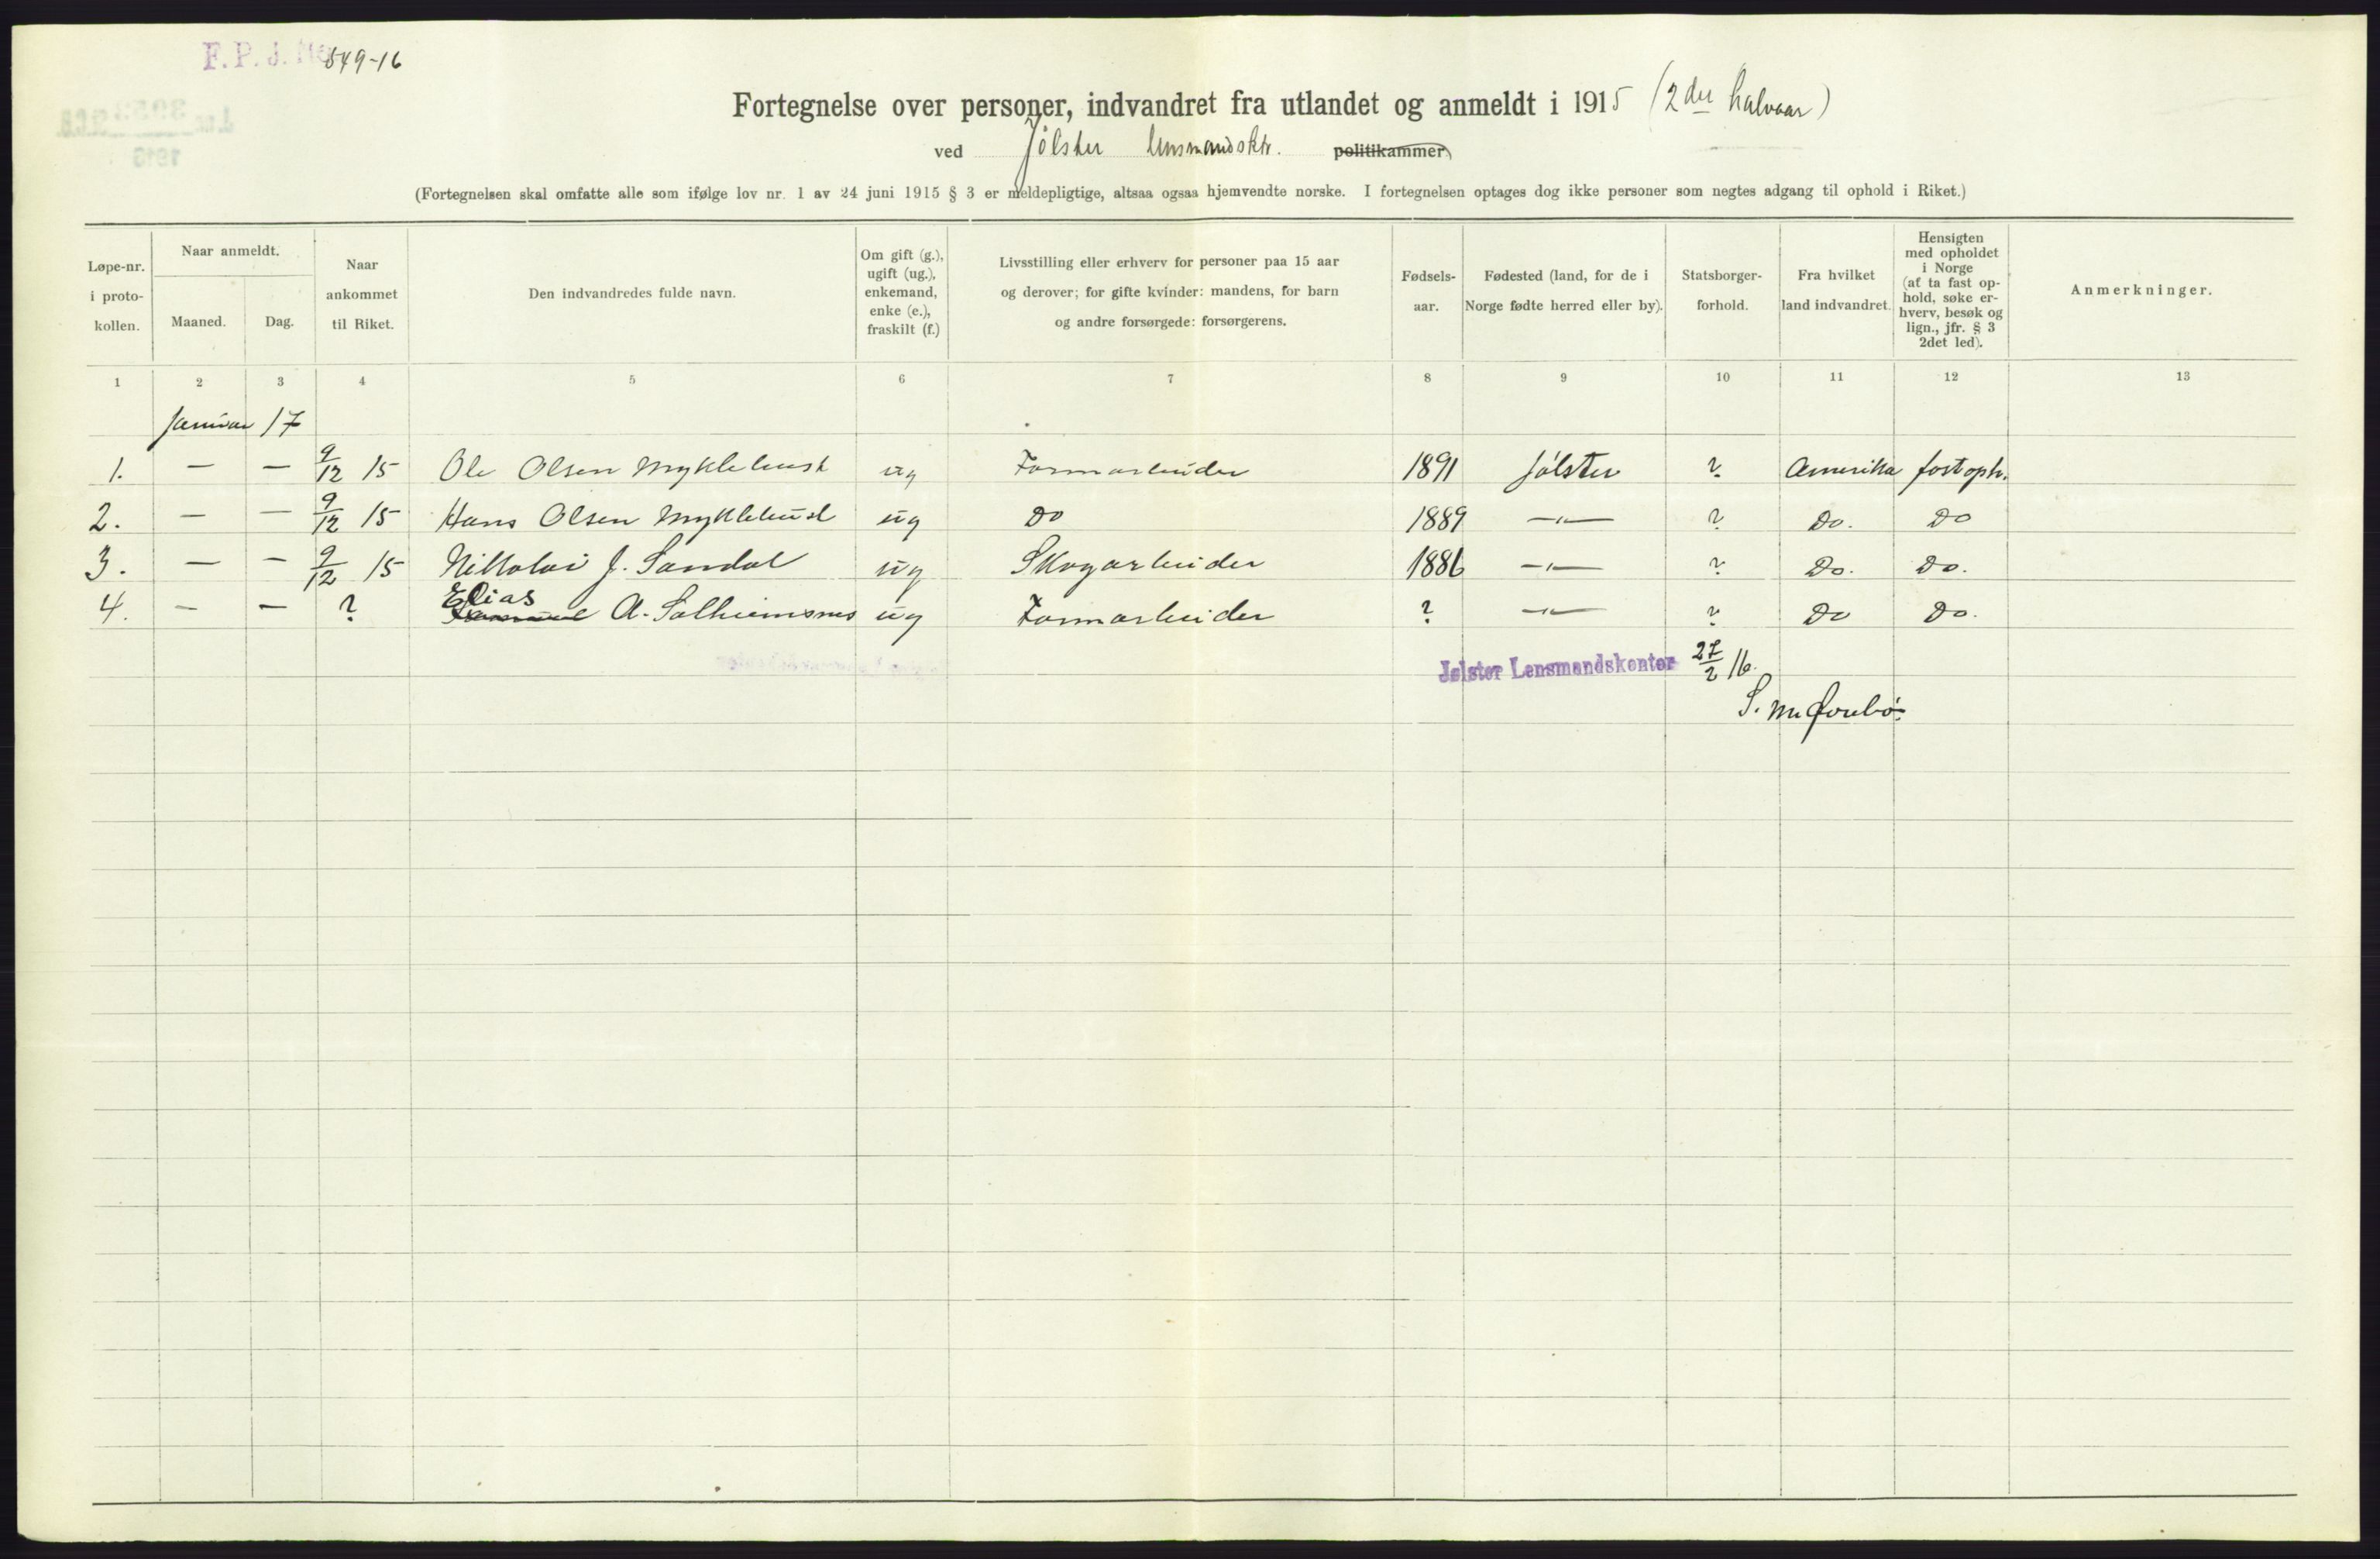 F. P. J. No 549-16
Fortegnelse over personer, indvandret fra utlandet og anmeldt i 1915 (2det halvaar)
ved Jølster lensmandsktr. politikammer
(Fortegnelsen skal omfatte alle som ifølge lov nr. 1 av 24 juni 1915 § 3 er meldepligtige, altsaa ogsaa hjemvendte norske. I fortegnelsen optages dog ikke personer som negtes adgang til ophold i Riket.)
Løpe-nr. i proto-kollen.
Naar anmeldt.
Maaned. Dag.
Naar ankommet til Riket.
Den indvandredes fulde navn.
Om gift (g.), ugift (ug.), enkemand, enke (e.), fraskilt (f.)
Livsstilling eller erhverv for personer paa 15 aar og derover; for gifte kvinder: mandens, for barn og andre forsørgede: forsørgerens.
Fødsels-aar.
Fødested (land, for de i Norge fødte herred eller by).
Statsborger-forhold.
Fra hvilket land indvandret.
Hensigten med opholdet i Norge (af ta fast op-hold, søke er-hverv, besøk og lign., jfr. § 3 2det led).
Anmerkninger.
1 2 3 4 5 6 7 8 9 10 11 12 13
Januar 17
1. — — 9/12 15 Ole Olsen Myklebust ug Farmarbeider 1891 Jølster ? Amerika fast oph.
2. — — 9/12 15 Hans Olsen Myklebust ug Do 1889 —"— ? Do. Do
3. — — 9/12 15 Nikolai J. Sandal ug Skogarbeider 1886 —"— ? Do. Do.
4. — — ? Elias A. Solheimsnes ug Farmarbeider ? —"— ? Do Do.
Jølster Lensmandskontor 27/2 16.